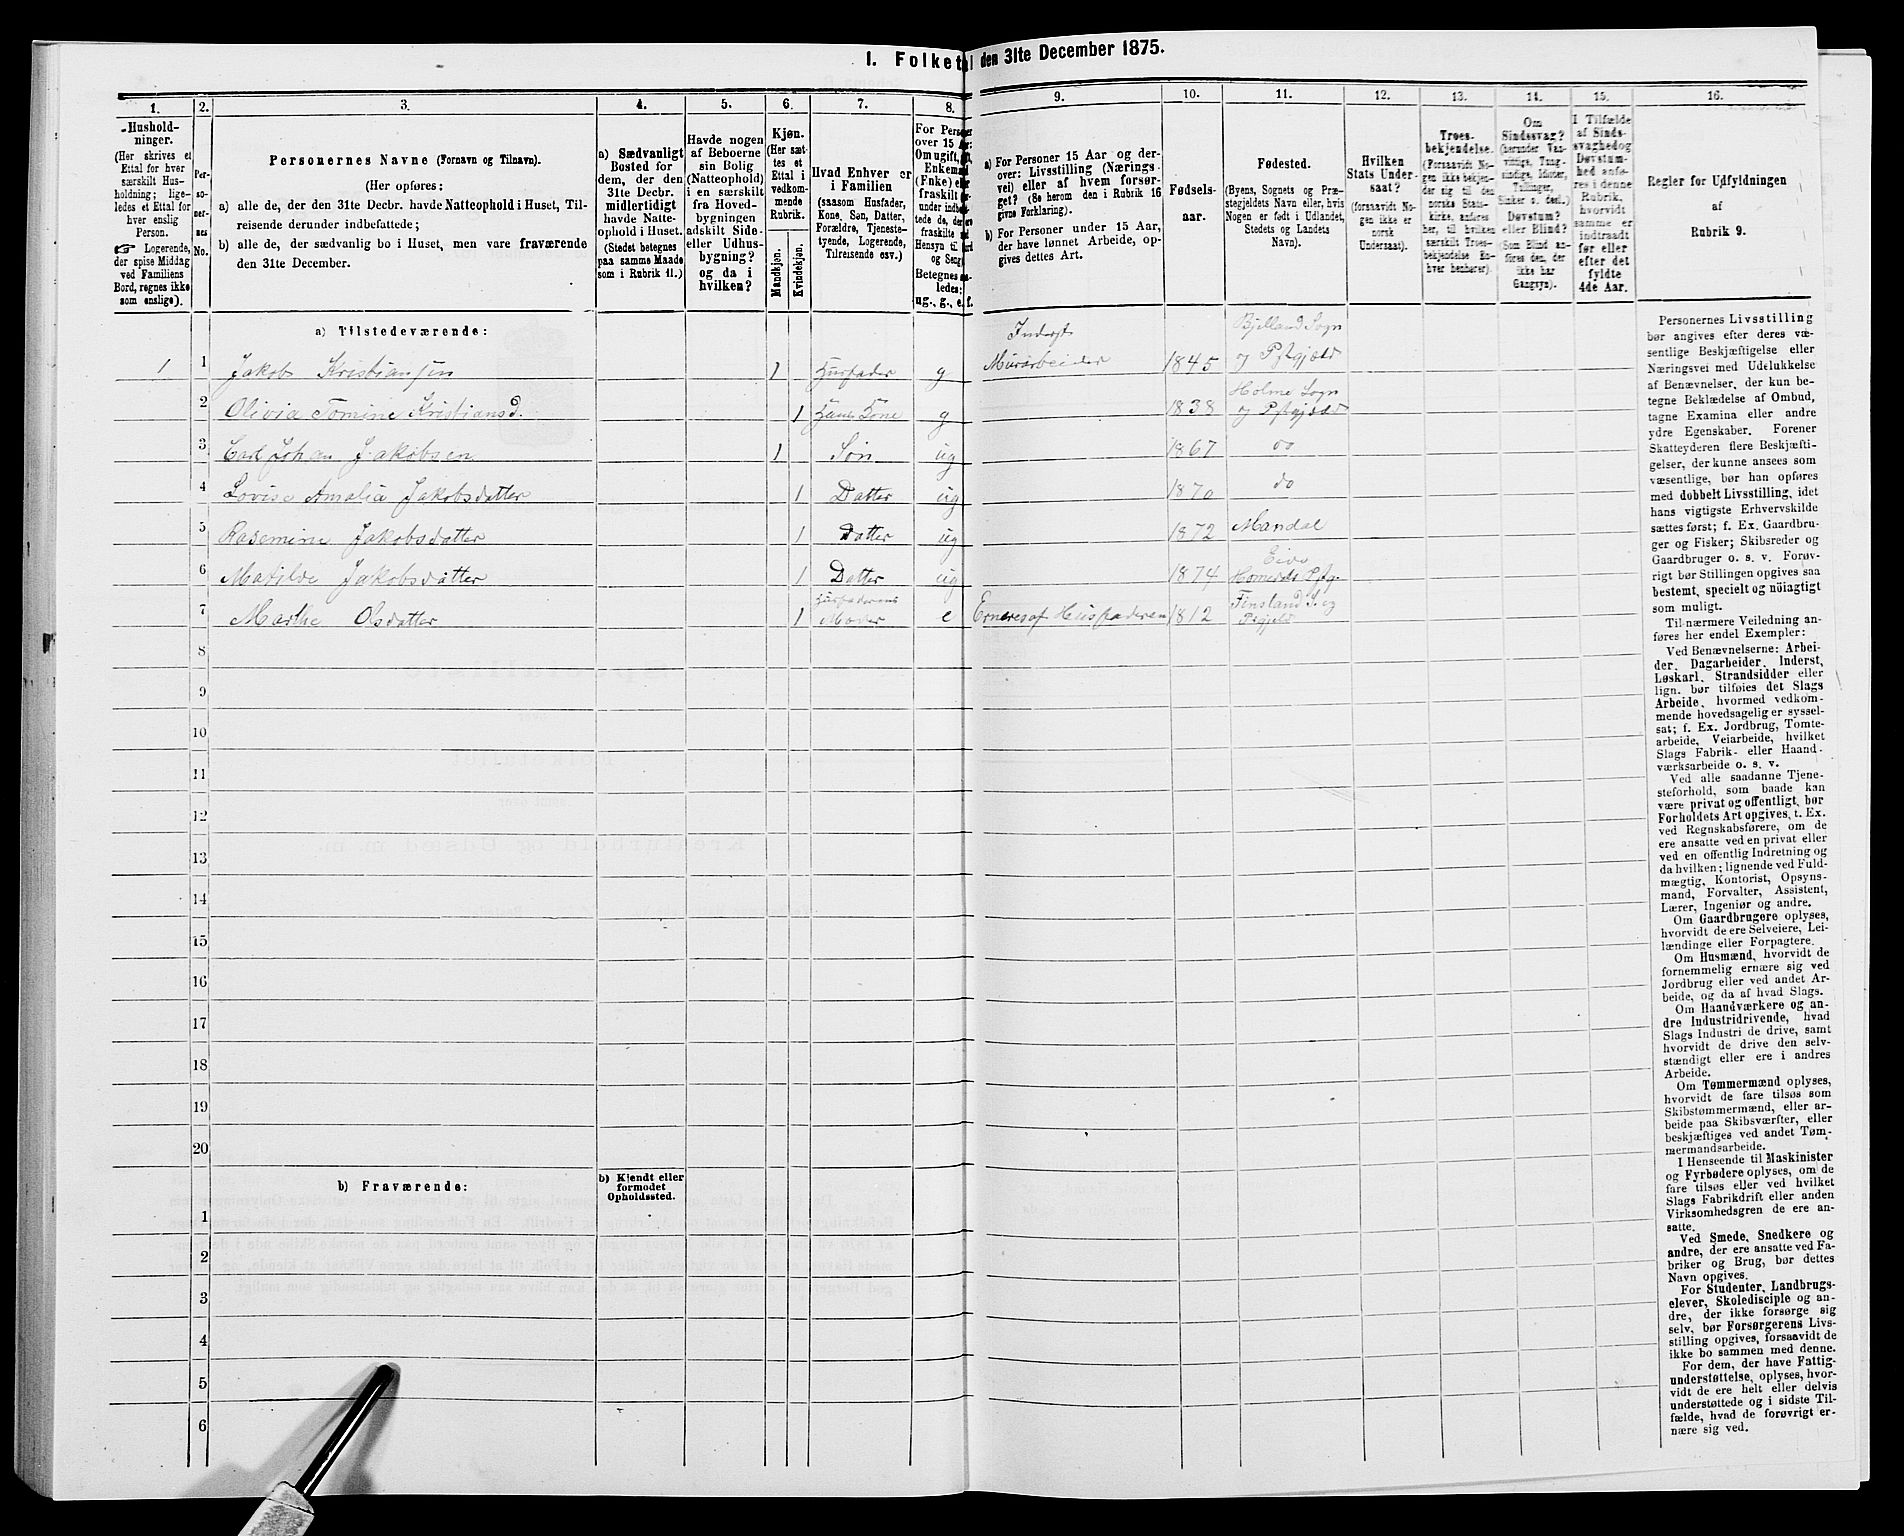 1. Folketal den 31te December 1875.
1.
Hushold-
ninger.
(Her skrives et
Ettal for hver
særskilt Hus-
holdning; lige-
ledes et Ettal for
hver enslig
Person.
Logerende,
der spise Middag
ved Familiens
Bord, regnes ikke
som enslige).
2.
Per-
so-
ner-
nes
No.
3.
Personernes Navne (Fornavn og Tilnavn).
(Her opføres:
a) alle de, der den 31te Decbr. havde Natteophold i Huset, Til-
reisende derunder indbefattede;
b) alle de, der sædvanlig bo i Huset, men vare fraværende
den 31te December.
4.
a) Sædvanligt
Bosted for
dem, der den
31te Decbr.
midlertidigt
havde Natte-
ophold i Huset.
(Stedet betegnes
paa samme Maade
som i Rubrik 11.)
5.
Havde nogen
af Beboerne
sin Bolig
(Natteophold)
i en særskilt
fra Hoved-
bygningen
adskilt Side-
eller Udhus-
bygning?
og da i
hvilken?
6.
Kjøn.
(Her sæt-
tes et
Ettal i
vedkom-
mende
Rubrik.
Mandkjøn.
Kvindekjøn.
7.
Hvad Enhver er
i Familien
(saasom Husfader,
Kone, Søn, Datter,
Forældre, Tjeneste-
tyende, Logerende,
Tilreisende osv.)
8.
For Person
over 15 Aar:
Om ugift,
Enkema
(Fnke) eller
fraskilt
Betegnes
ledes:
ug., g., e. f.
9.
a) For Personer 15 Aar og der-
over: Livsstilling (Nærings
vei) eller af hvem forsør-
get? (Se herom den i Rubrik 16
givne Forklaring).
b) For Personer under 15 Aar,
der have lønnet Arbeide, op-
gives dettes Art.
10.
Fødsels-
aar.
11.
Fødested.
(Byens, Sognets og Præ-
stegjeldets Navn eller, hvis
Nogen er født i Udlandet,
Stedets og Landets
Navn).
12.
Hvilken
Stats Under-
saat?
(forsaavidt No-
gen ikke er
norsk
Undersaat).
13.
Troes-
bekjendelse.
(Forsaavidt No-
gen ikke bekjen-
der sig til den
norske Stats-
kirke, anføres
her, til hvilken
særskilt Troes-
bekjendelse En-
hver henhører).
14.
Om
Sindssvag?
(herunder Van-
vittige, Tung-
sindige, Idioter,
Tullinger,
Sinker o. desl.)
Døvstum?
eller Blind?
(Som Blind an-
føres den, der
ikke har
Gangsyn).
15.
I Tilfælde
af Sinds-
svaghed og
Døvstum-
hed anfø-
res i denne
Rubrik,
hvorvidt
samme er
indtraadt
før eller
efter det
fyldte
4de Aar.
16.
Regler for Udfyldningen
af
Rubrik 9.
a) Tilstedeværende:
1 1 Jakob Kristiansen 1 Husfader g Inderst Murarbeider 1845 Bjelland Sogn og Pstgjæld
2 Olivia Tomine Kristiansd. 1 Hans Kone g 1838 Holme Sogn og Pstgjæld
3 Carl Johan Jakobsen 1 Søn ug 1867 do
4 Lovise Amalia Jakobsdatter 1 Datter ug 1870 do
5 Rasemine Jakobsdatter 1 Datter ug 1872 Mandal
6 Matilde Jakobsdatter 1 Datter ug 1874 Pstg.
7 Marthe Olsdatter 1 Husfaderens Moder e Erneres af Husfaderen 1812 Finsland S. og Pstgjeld
8
9
10
11
12
13
14
15
16
17
18
19
20
b) Fraværende:
b) Kjendt eller
formodet
Opholdssted.
1
2
3
4
5
6
Personernes Livsstilling
bør angives efter deres væ-
sentlige Beskjæftigelse eller
Næringsvei med Udelukkelse
af Benævnelser, der kun be-
tegne Beklædelse af Ombud,
tagne Examina eller andre
ydre Egenskaber. Forener
Skatteyderen flere Beskjæfti-
gelser, der kunne ansees som
væsentlige, bør han opføres
med dobbelt Livsstilling, idet
hans vigtigste Erhvervskilde
sættes først; f. Ex. Gaardbru-
ger og Fisker; Skibsreder og
Gaardbruger o. s. v. Forøv-
rigt bør Stillingen opgives saa
bestemt, specielt og nöiagtigt
som muligt.
Til nærmere Veiledning an-
føres her endel Exempler:
Ved Benævnelserne: Arbei-
der, Dagarbeider, Inderst,
Løskarl, Strandsidder eller
lign. bør tilføies det Slags
Arbeide, hvormed vedkom-
mende hovedsagelig er syssel-
sat; f. Ex. Jordbrug, Tomte-
arbeide, Veiarbeide, hvilket
Slags Fabrik- eller Haand-
værksarbeide o. s. v.
Ved alle saadanne Tjene-
steforhold, som baade kan
være privat og offentligt, bør
Forholdets Art opgives, t. Ex.
ved Regnskabsførere, om de
ere ansatte ved en privat eller
ved en offentlig Indretning og
da hvilken; lignende ved Fuld-
mægtig, Kontorist, Opsyns-
mand, Forvalter, Assistent,
Lærer, Ingeniør og andre.
Om Gaardbrugere oplyses,
hvorvidt de ere Selveiere, Lei-
lændinge eller Forpagtere.
Om Husmænd, hvorvidt de
fornemmelig ernære sig ved
Jordbrug eller ved andet Ar-
beide, og da af hvad Slags.
Om Haandværkere og an-
dre Industridrivende, hvad
Slags Industri de drive, samt
hvorvidt de drive den selv-
stændigt eller ere i andres
Arbeide.
Om Tømmermænd oplyses,
hvorvidt de fare tilsøs som
Skibstømmermænd, eller ar-
beide paa Skibsværfter, eller
beskjæftiges ved andet Tøm-
mermandsarbeide.
I Henseende til Maskinister
og Fyrbødere oplyses, om de
fare tilsøs eller ved hvilket
Slags Fabrikdrift eller anden
Virksomhedsgren de ere an-
satte.
Ved Smede, Snedkere og
andre, der ere ansatte ved Fa-
briker og Brug, bør dettes
Navn opgives.
For Studenter, Landbrugs-
elever, Skoledisciple og an-
dre, der ikke forsørge sig
selv, bør Forsørgerens Livs-
stilling opgives, forsaavidt de
ikke bo sammen med denne.
For dem, der have Fattig-
understøttelse, oplyses, hvor-
vidt de ere helt eller delvis
understøttede og i sidste Til-
fælde, hvad de forøvrigt er-
nære sig ved.